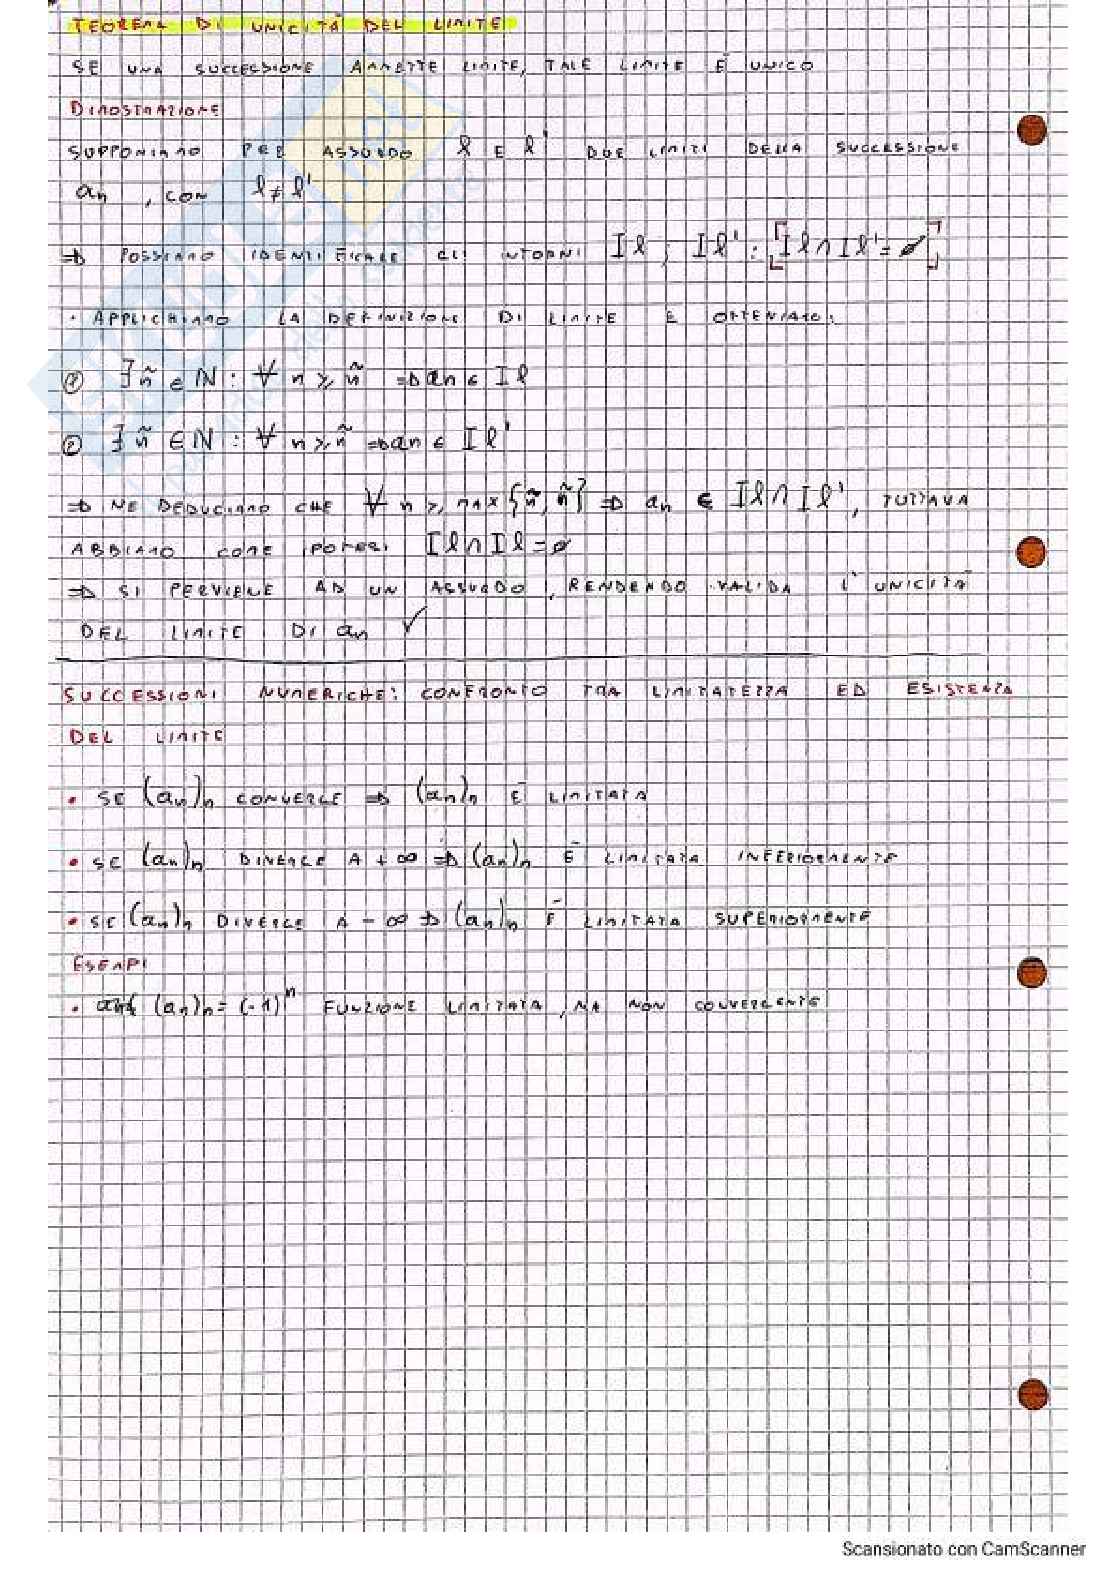 TEOREMA DI UNICITÀ DEL LIMITE
SE UNA SUCCESSIONE AMMETTE LIMITE, TALE LIMITE È UNICO
DIMOSTRAZIONE
SUPPONIAMO PER ASSURDO l E l' DUE LIMITI DELLA SUCCESSIONE
an , CON l ≠ l'
⇒ POSSIAMO IDENTIFICARE GLI INTORNI Il ; Il' : [Il ∩ Il' = ∅]
· APPLICHIAMO LA DEFINIZIONE DI LIMITE E OTTENIAMO:
① ∃ ñ ∈ N : ∀ n ≥ ñ ⇒ an ∈ Il
② ∃ ñ ∈ N : ∀ n ≥ ñ ⇒ an ∈ Il'
⇒ NE DEDUCIAMO CHE ∀ n ≥ MAX {ñ, ñ} ⇒ an ∈ Il ∩ Il', TUTTAVA
ABBIAMO COME IPOTESI Il ∩ Il = ∅
⇒ SI PERVIENE AD UN ASSURDO, RENDENDO VALIDA L'UNICITÀ
DEL LIMITE DI an ✓
SUCCESSIONI NUMERICHE: CONFRONTO TRA LIMITATEZZA ED ESISTENZA
DEL LIMITE
• SE (an)n CONVERGE ⇒ (an)n È LIMITATA
• SE (an)n DIVERGE A +∞ ⇒ (an)n È LIMITATA INFERIORMENTE
• SE (an)n DIVERGE A -∞ ⇒ (an)n È LIMITATA SUPERIORMENTE
ESEMPI
• (an)n = (-1)^n FUNZIONE LIMITATA, MA NON CONVERGENTE
Scansionato con CamScanner